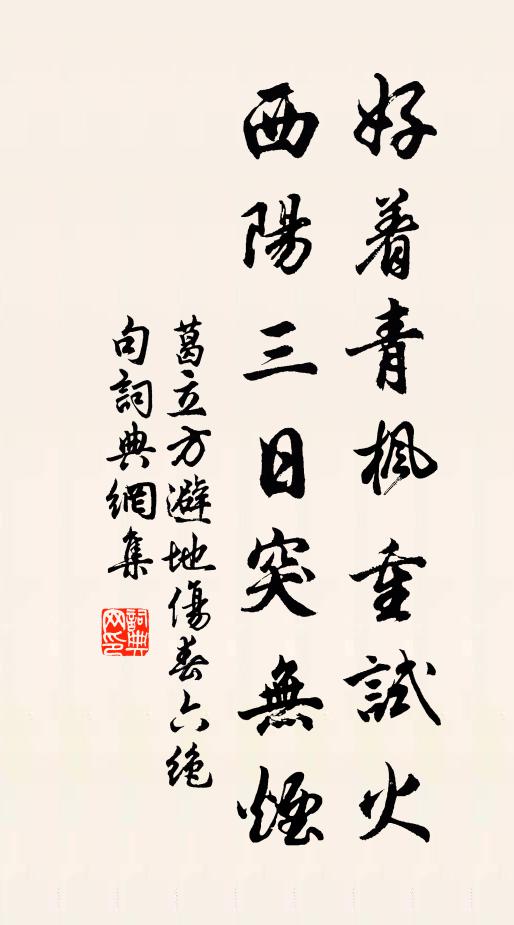 好着青楓重試火
西陽三日突無煙
葛立方避地傷春六絶
句詞典網集
詞典網印